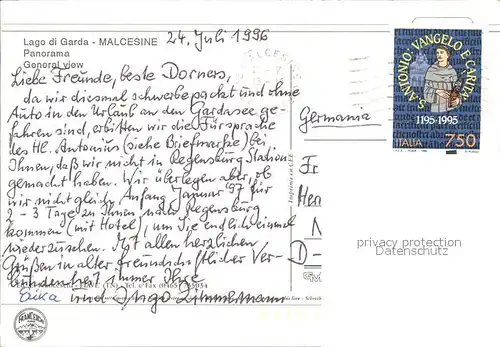 Lago di Garda - MALCESINE
Panorama
General view
24. Juli 1996
Liebe Freunde, beste Dorners,
da wir diesmal schwerbepackt und ohne
Auto in den Urlaub an den Gardasee ge-
fahren sind, erbitten wir die Fürsprache
des Hl. Antonius (siehe Briefmarke) bei
Ihnen, daß wir nicht in Regensburg Station
gemacht haben. Wir überlegen aber, ob
wir nicht gleich Anfang Januar '97 für
2-3 Tage zu Ihnen nach Regensburg
kommen (mit Hotel), um Sie endlich einmal
wiederzusehen. Mit allen herzlichen
Grüßen in alter freundschaftlicher Ver-
bundenheit immer Ihre
und Ingo Zimmermann
Germania
D-
S. ANTONIO: VANGELO E CARITÀ
1195·1995
ITALIA 750
privacy protection
watermark